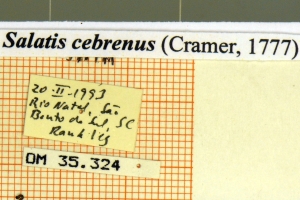 Salatis cebrenus (Cramer, 1777)
20-II-1993
Rio Natal, São
Bento do Sul, SC
Rank leg
OM 35.324